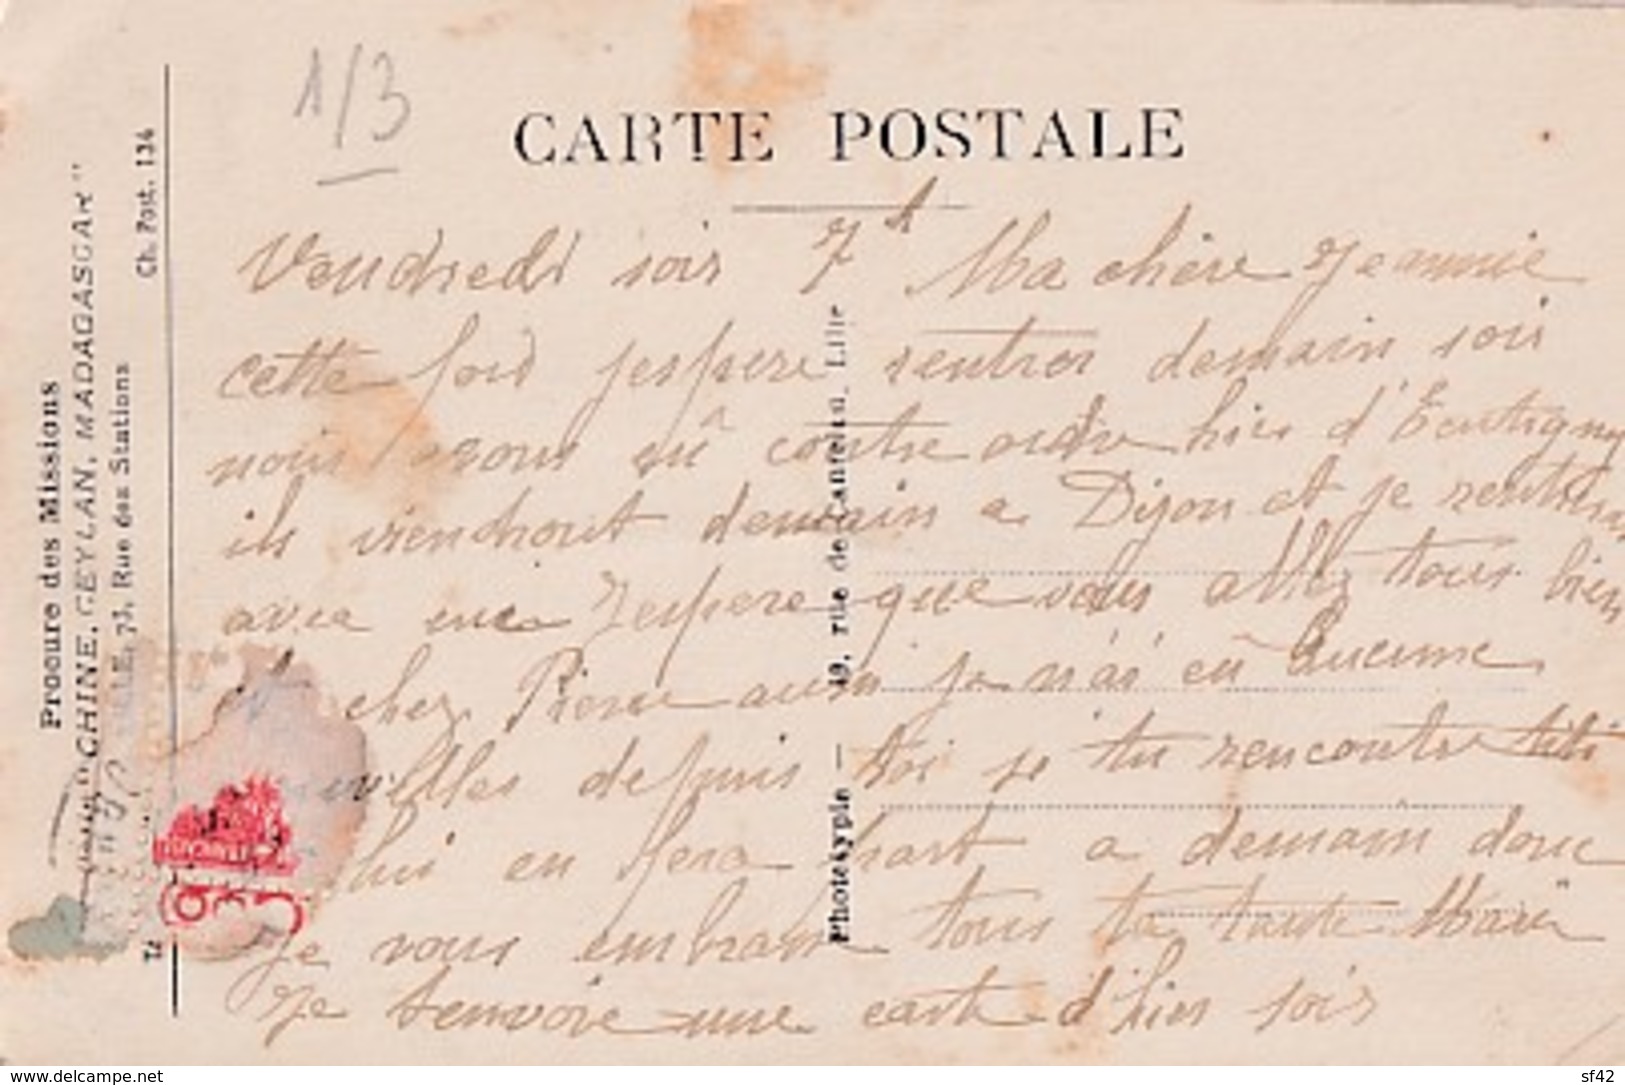 1/3
CARTE POSTALE
Vendredi soir 7h Ma chère Jeannie
cette fois jespere rentrer demain soir
nous avons eû contre ordre hier d'Eentigny
ils viendront demain a Dijon et je rentrerai
avec eux Jespere que vous allez tous bien
et chez Pierre aussi je n'ai eû Aucune
nouvelles depuis toi si tu rencontre titi
lui en fera part a demain donc
Je vous embrasse tous ta tante Marie
Je tenvoie une carte d'hier soir
Procure des Missions
"CHINE, CEYLAN, MADAGASCAR"
LILLE, 73, Rue des Stations
Ch. Post. 134
Phototypie — 49, rue de Canteleu, Lille
www.delcampe.net
sf42